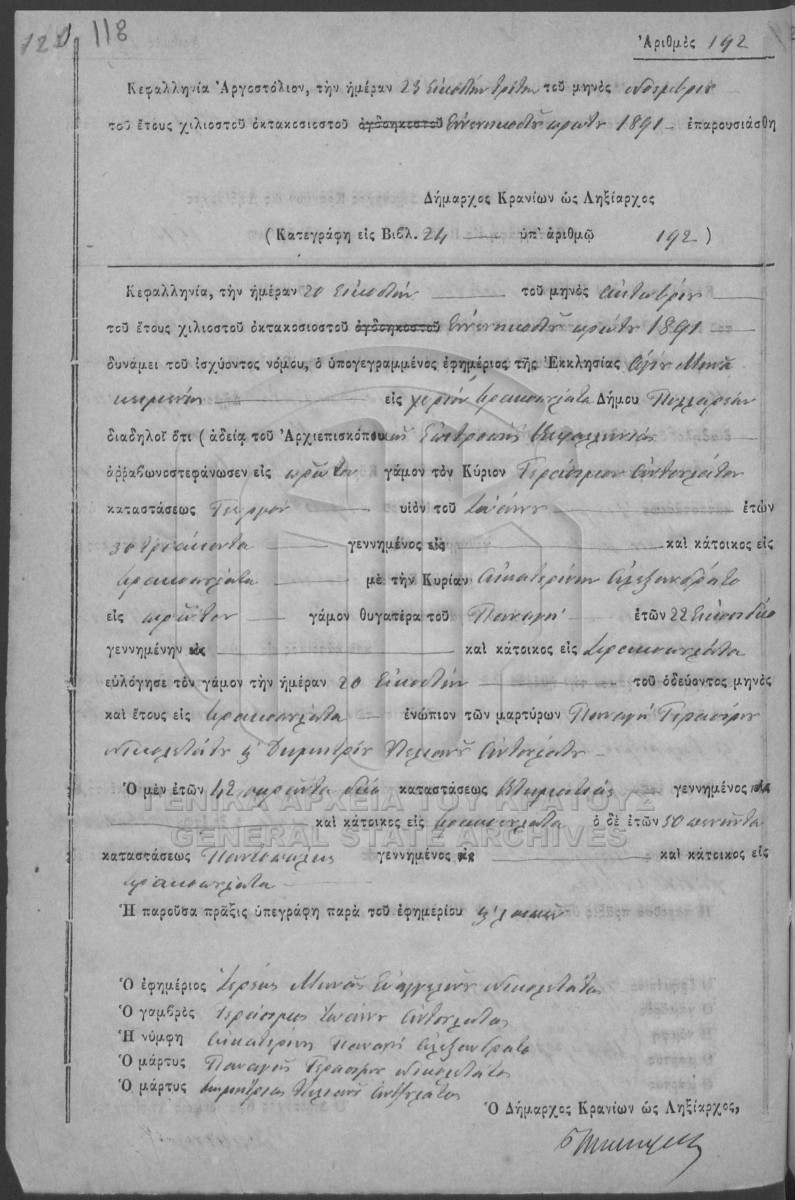 121 118
Ἀριθμὸς 192
Κεφαλληνία Ἀργοστόλιον, τὴν ἡμέραν 23 εἰκοστὴν τρίτην τοῦ μηνὸς Νοεμβρίου
τοῦ ἔτους χιλιοστοῦ ὀκτακοσιοστοῦ ὀγδοηκοστοῦ ἐννενηκοστοῦ πρώτου 1891 ἐπαρουσιάσθη
Δήμαρχος Κρανίων ὡς Ληξίαρχος
(Κατεγράφη εἰς Βιβλ. 24 ὑπ' ἀριθμῷ 192)
Κεφαλληνία, τὴν ἡμέραν 20 εἰκοστὴν τοῦ μηνὸς Ὀκτωβρίου
τοῦ ἔτους χιλιοστοῦ ὀκτακοσιοστοῦ ὀγδοηκοστοῦ ἐννενηκοστοῦ πρώτου 1891
δυνάμει τοῦ ἰσχύοντος νόμου, ὁ ὑπογεγραμμένος ἐφημέριος τῆς Ἐκκλησίας Ἁγίου Μηνᾶ
κειμένης εἰς χωρίον Δήμου
διαδηλοῖ ὅτι (ἀδείᾳ τοῦ Ἀρχιεπισκόπου Ἐπιτροπῆς Κεφαλληνίας
ἀρραβωνοστεφάνωσεν εἰς πρῶτον γάμον τὸν Κύριον Γεράσιμον Ἀντουλάτον
καταστάσεως Γεωργοῦ υἱὸν τοῦ Ἰωάννου ἐτῶν
30 τριάκοντα γεννημένος εἰς καὶ κάτοικος εἰς
μὲ τὴν Κυρίαν Αἰκατερίνην Ἀλεξανδράτο
εἰς πρῶτον γάμον θυγατέρα τοῦ Παναγῆ ἐτῶν 22 εἴκοσι δύο
γεννημένην εἰς καὶ κάτοικος εἰς
εὐλόγησε τὸν γάμον τὴν ἡμέραν 20 εἰκοστὴν τοῦ ὁδεύοντος μηνὸς
καὶ ἔτους εἰς ἐνώπιον τῶν μαρτύρων Παναγῆ Γερασίμου
Νικολετάτου Δημητρίου Ἀντουλάτου
Ὁ μὲν ἐτῶν 42 σαράντα δύο καταστάσεως Κτηματίας γεννημένος εἰς
καὶ κάτοικος εἰς ὁ δὲ ἐτῶν 50 πενῆντα
καταστάσεως Παντοπώλης γεννημένος εἰς καὶ κάτοικος εἰς
Ἡ παροῦσα πρᾶξις ὑπεγράφη παρὰ τοῦ ἐφημερίου
Ὁ ἐφημέριος Ἱερεὺς Μηνᾶς Εὐαγγελινὸς Νικολετάτος
Ὁ γαμβρὸς Γεράσιμος Ἰωάννου Ἀντουλάτος
Ἡ νύμφη Αἰκατερίνη Παναγῆ Ἀλεξανδράτο
Ὁ μάρτυς Παναγῆς Γερασίμου Νικολετάτος
Ὁ μάρτυς Δημήτριος Ἀντουλάτος
Ὁ Δήμαρχος Κρανίων ὡς Ληξίαρχος,
ΓΕΝΙΚΑ ΑΡΧΕΙΑ ΤΟΥ ΚΡΑΤΟΥΣ
GENERAL STATE ARCHIVES